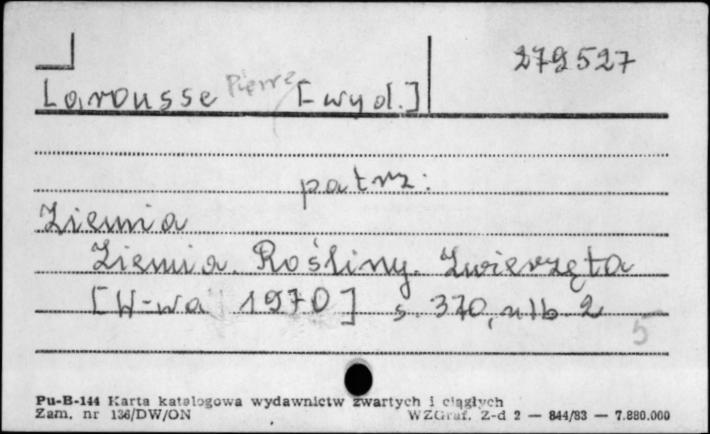 279527
Larousse Pierre [wyd.]
patrz:
Ziemia
Ziemia. Rośliny. Zwierzęta
[W-wa 1970] s. 370, nlb. 2
5
Pu-B-144 Karta katalogowa wydawnictw zwartych i ciągłych
Zam. nr 136/DW/ON WZGraf. Z-d 2 — 844/83 — 7.880.000